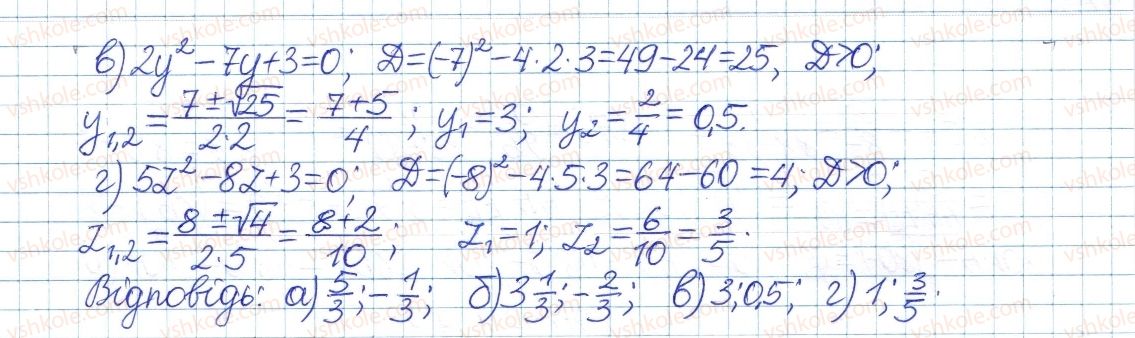 в) 2y² − 7y + 3 = 0; D = (−7)² − 4 · 2 · 3 = 49 − 24 = 25, D > 0;
y₁,₂ = (7 ± √25)/(2·2) = (7 + 5)/4; y₁ = 3; y₂ = 2/4 = 0,5.
г) 5z² − 8z + 3 = 0; D = (−8)² − 4 · 5 · 3 = 64 − 60 = 4; D > 0;
z₁,₂ = (8 ± √4)/(2·5) = (8 + 2)/10; z₁ = 1; z₂ = 6/10 = 3/5.
Відповідь: а) 5/3; −1/3; б) 3 1/3; −2/3; в) 3; 0,5; г) 1; 3/5.